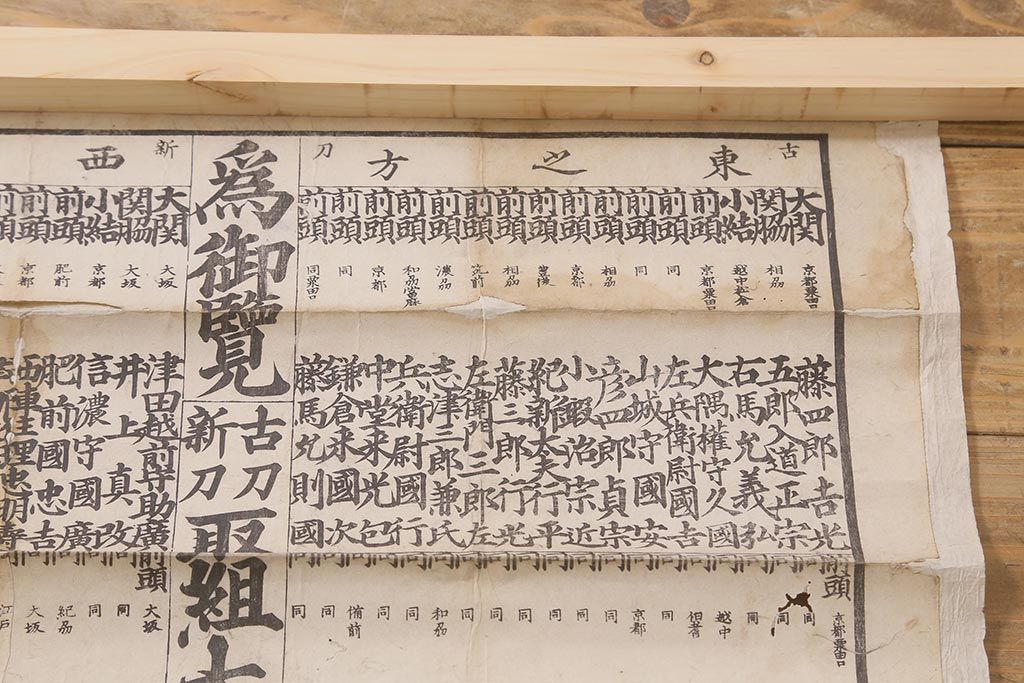 古刀 東之方
大関 京都粟田口 藤四郎吉光
関脇 相刕 五郎入道正宗
小結 越中松倉 右馬允義弘
前頭 京都粟田口 大隅權守久國
前頭 同 左兵衛尉國吉
前頭 同 山城守國安
前頭 相刕 彦四郎貞宗
前頭 京都 小鍛冶宗近
前頭 豊後 紀新太夫行平
前頭 相刕 藤三郎行光
前頭 筑前 左衛門三郎左
前頭 濃刕 志津三郎兼氏
前頭 和刕當麻 兵衛尉國行
前頭 京都 中堂来光包
前頭 同 鎌倉来國次
前頭 同粟田口 藤馬允則國
前頭 京都粟田口
同 同
同 同
同 同
同 越中
同 伯耆
同 同
同 京都
同 同
同 同
同 同
同 同
同 同
同 和刕
同 同
同 同
同 備前
同 同
同 同
為御覧
古刀
新刀
取組
新 西
大関 大坂 津田越前守助廣
関脇 大坂 井上真改
小結 京都 信濃守國廣
前頭 肥前 肥前國忠吉
前頭 京都
前頭 大坂
同 同
同 紀刕
同 大坂
江戸